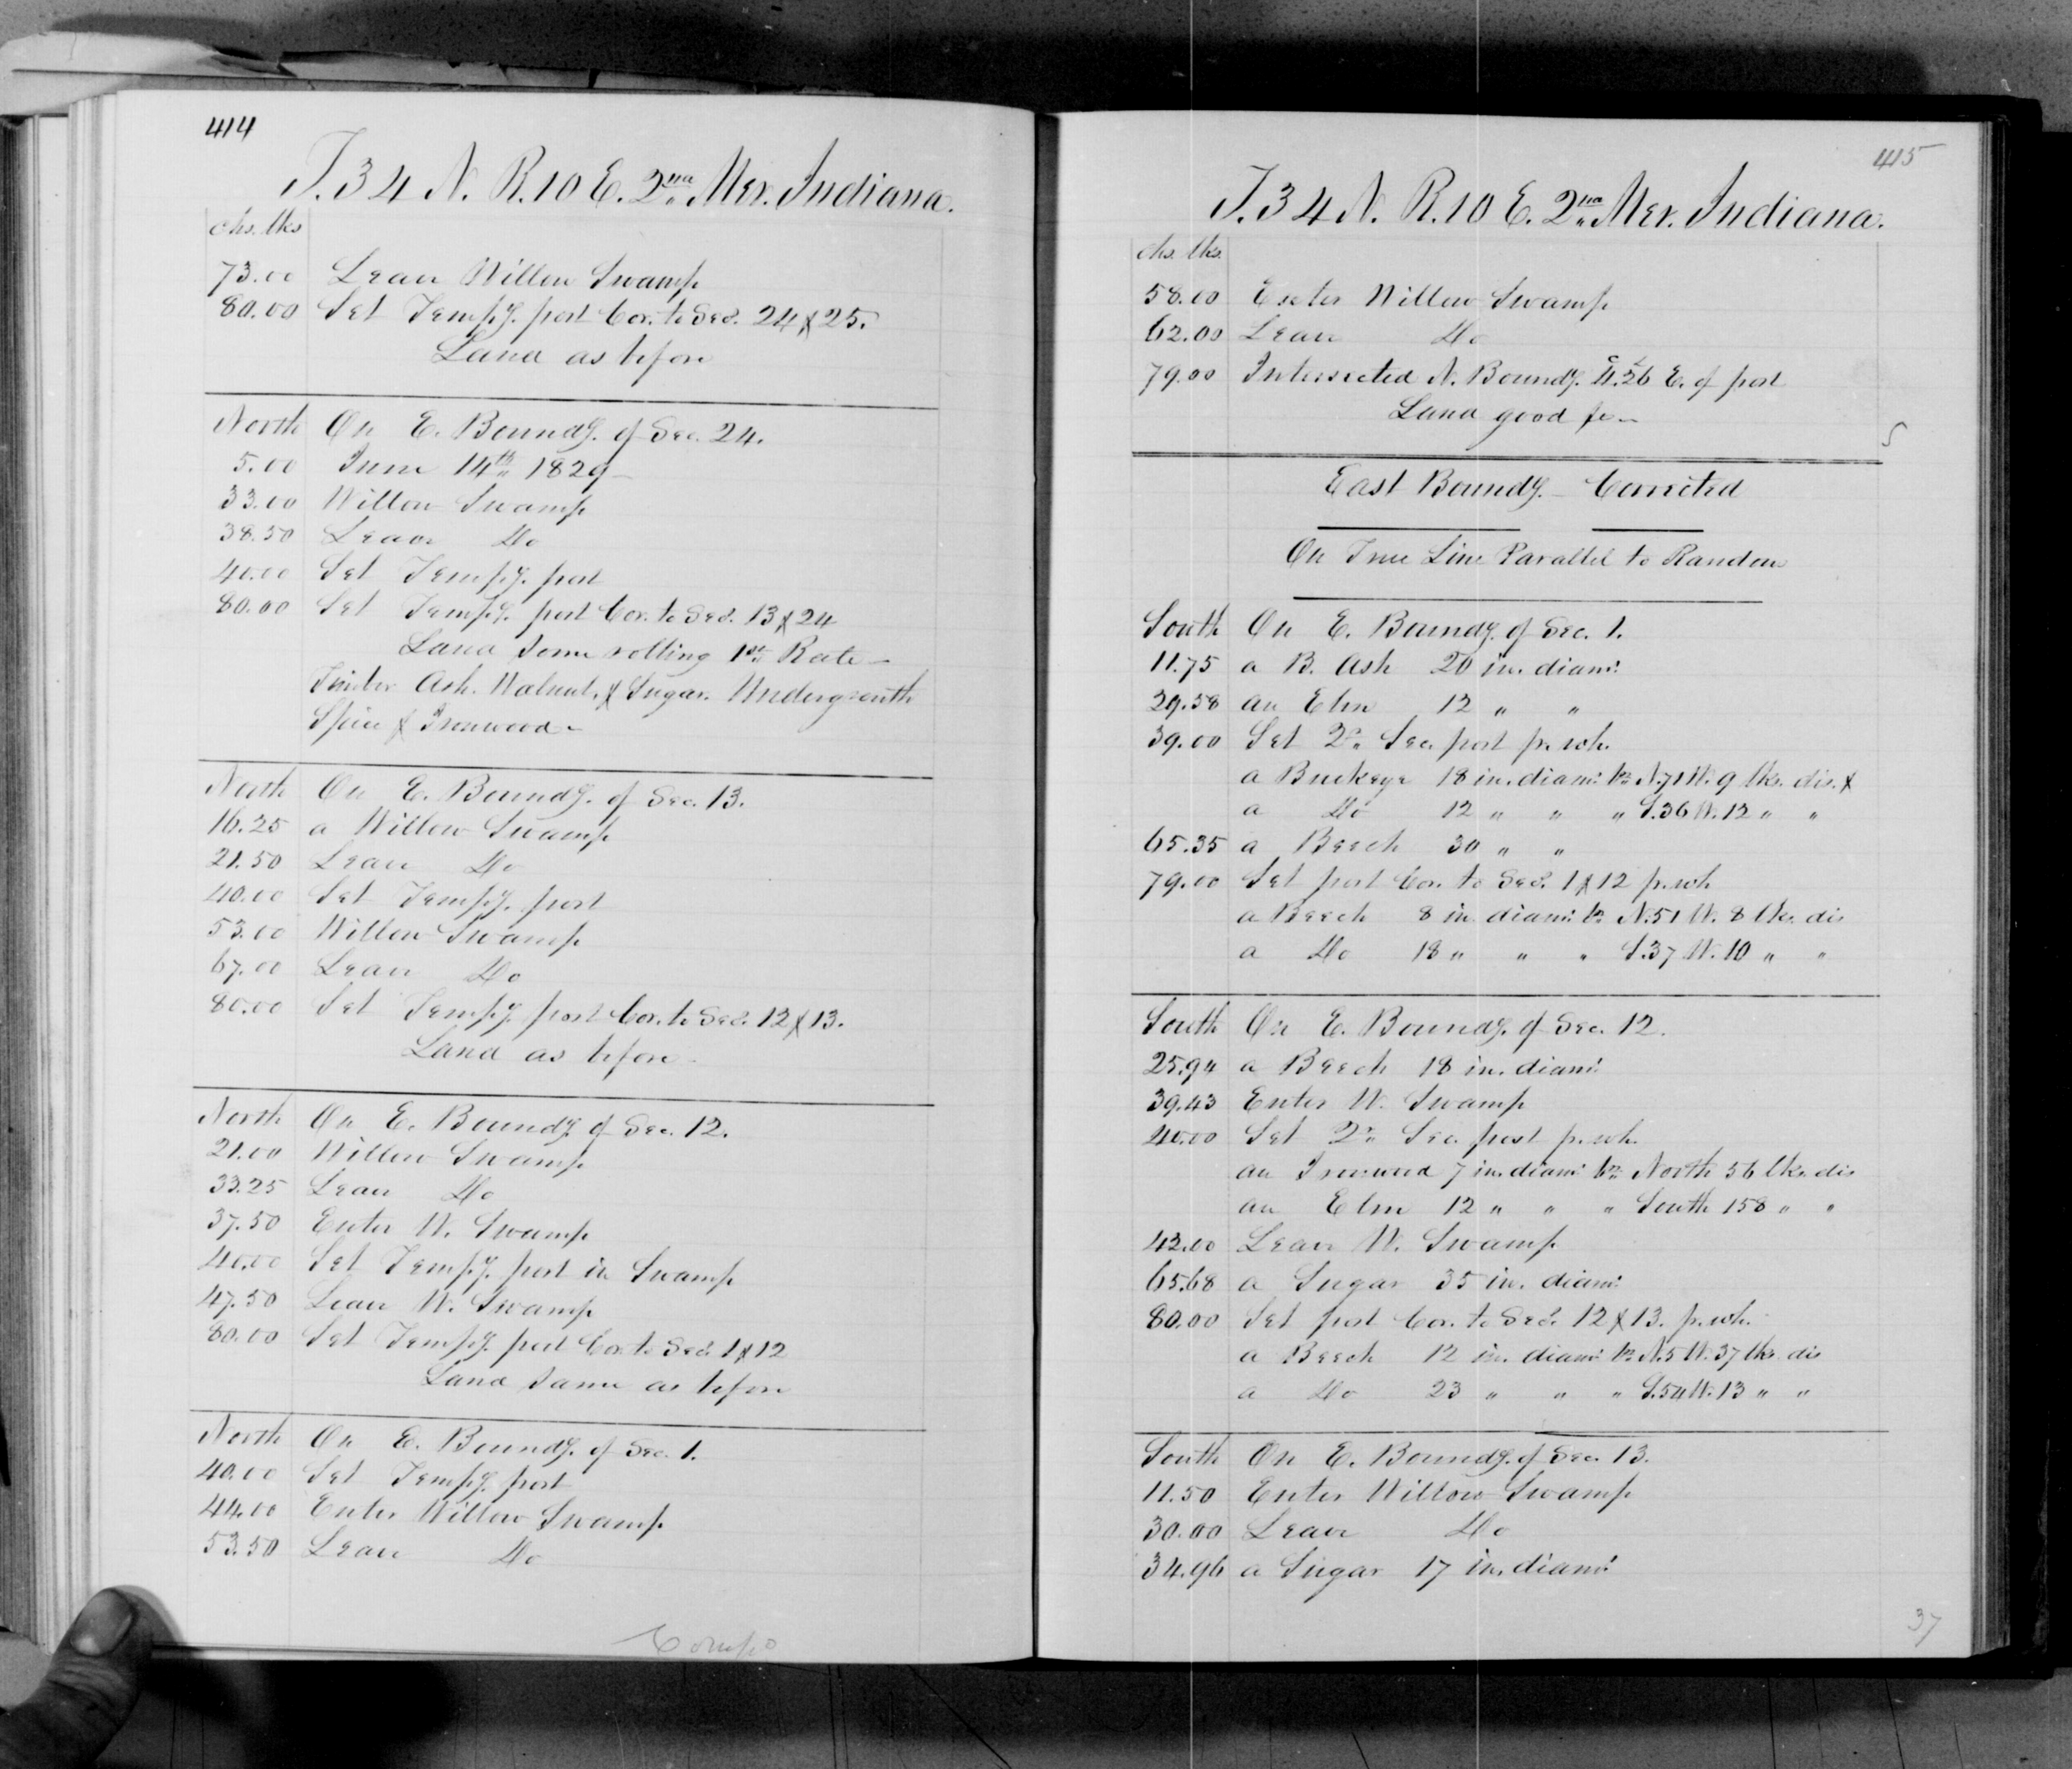 414
T. 34 N. R. 10 E. 2nd Mer. Indiana.
chs. lks
73.00 Leave Willow Swamp
80.00 Set Tempy. post Cor. to Secs. 24 & 25.
Land as before
North On E. Boundy. of Sec. 24.
5.00 June 14th 1829
33.00 Willow Swamp
38.50 Leave Do
40.00 Set Tempy. post
80.00 Set Tempy. post Cor. to Secs. 13 & 24
Land Some rolling 1st Rate
Timber Ash. Walnut. & Sugar. Undergrowth
Spice & Ironwood
North On E. Boundy. of Sec. 13.
16.25 a Willow Swamp
21.50 Leave Do
40.00 Set Tempy. post
53.00 Willow Swamp
67.00 Leave Do
80.00 Set Tempy. post Cor. to Secs. 12 & 13.
Land as before
North On E. Boundy. of Sec. 12.
21.00 Willow Swamp
33.25 Leave Do
37.50 Enter W. Swamp
40.00 Set Tempy. post in Swamp
47.50 Leave W. Swamp
80.00 Set Tempy. post Cor. to Secs. 1 & 12
Land Same as before
North On E. Boundy. of Sec. 1.
40.00 Set Tempy. post
44.00 Enter Willow Swamp
53.50 Leave Do
415
T. 34 N. R. 10 E. 2nd Mer. Indiana.
chs. lks.
58.00 Enter Willow Swamp
62.00 Leave Do
79.00 Intersected N. Boundy. E. of post
Land good
East Boundy. Corrected
On True Line Parallel to Random
South On E. Boundy. of Sec. 1.
11.75 a B. Ash 20 in. diamr.
29.58 an Elm 12 " "
39.00 Set Qr. Sec. post fr. wh.
a Buckeye 18 in. diamr. brs. N. 71 W. 9 lks. dis. &
a Do 12 " " " S. 36 W. 12 " "
65.35 a Beech 30 " "
79.00 Set post Cor. to Secs. 1 & 12 fr. wh
a Beech 8 in diamr. brs. N. 51 W. 8 lks. dis
a Do 18 " " " S. 37 W. 10 " "
South On E. Boundy. of Sec. 12.
25.94 a Beech 18 in. diamr.
39.43 Enter W. Swamp
40.00 Set Qr. Sec. post fr. wh.
an Ironwood 7 in. diamr. brs. North 56 lks. dis
an Elm 12 " " " South 158 " "
42.00 Leave W. Swamp
65.68 a Sugar 35 in. diamr.
80.00 Set post Cor. to Secs. 12 & 13. fr. wh.
a Beech 12 in. diamr. brs. N. 5 W. 37 lks. dis
a Do 23 " " " S. 54 W. 13 " "
South On E. Boundy. of Sec. 13.
11.50 Enter Willow Swamp
30.00 Leave Do
34.96 a Sugar 17 in. diamr.
37